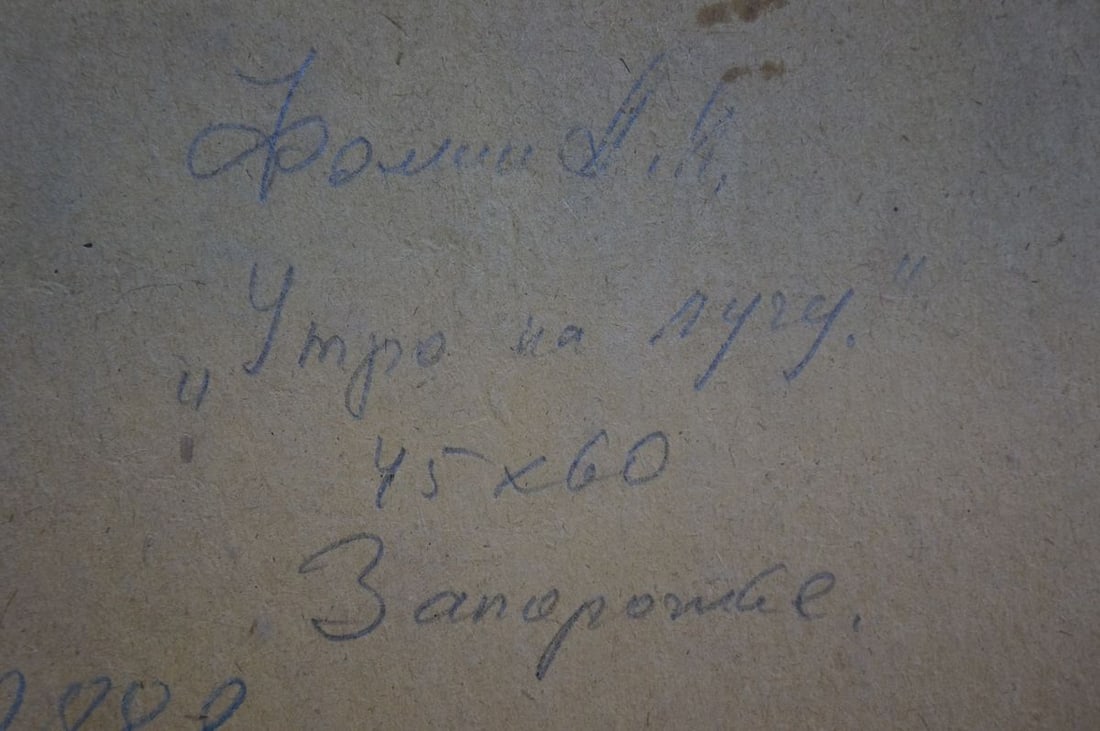 Фомин А.К.
„Утро на лугу."
45 х 60
Запорожье.